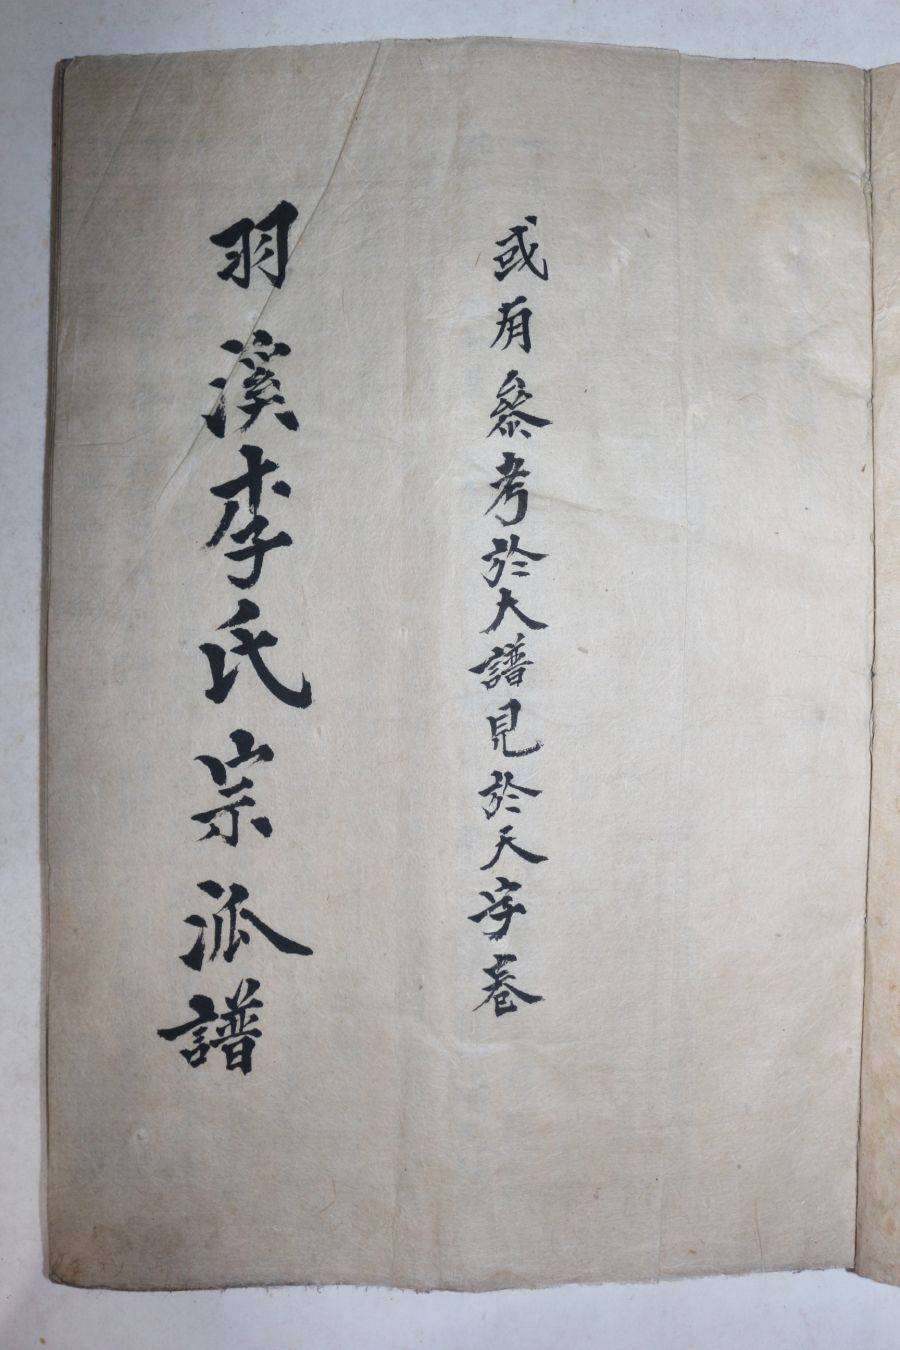 或有參考於大譜見於天字卷
羽溪李氏宗派譜